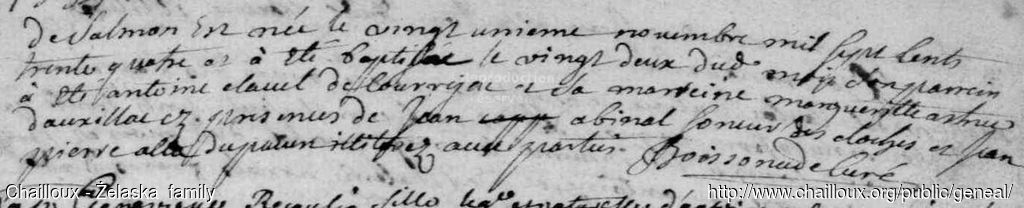 de Salmon Est née le vingt unieme novembre mil sept cents
trente quatre et à été baptisée le vingt deux dud. mois son parrein
à été antoine clavel de Courrejac et la marreine margueritte astruc
d'auxillac ez presences de Jean abinal soneur des cloches et Jean
pierre du patun illiterez aux parties. Boissonade Curé
Reproduction
Chailloux - Żelaska family
http://www.chailloux.org/public/geneal/